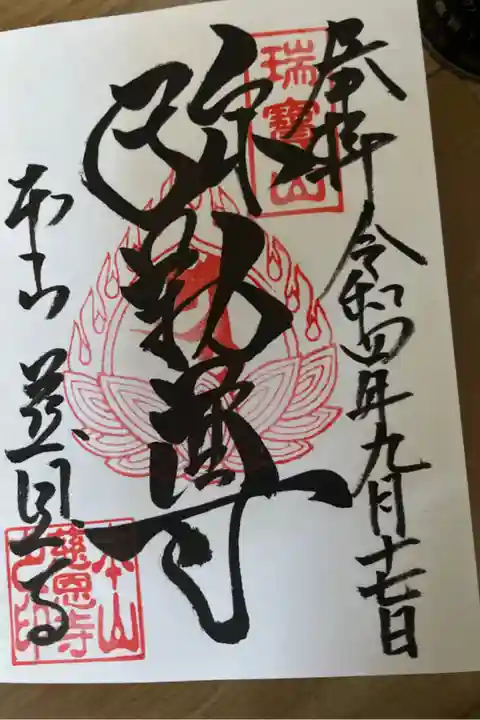 奉拝
令和四年九月十七日
瑞寳山
弥勒尊
本山 慈恩寺
本山
慈恩寺